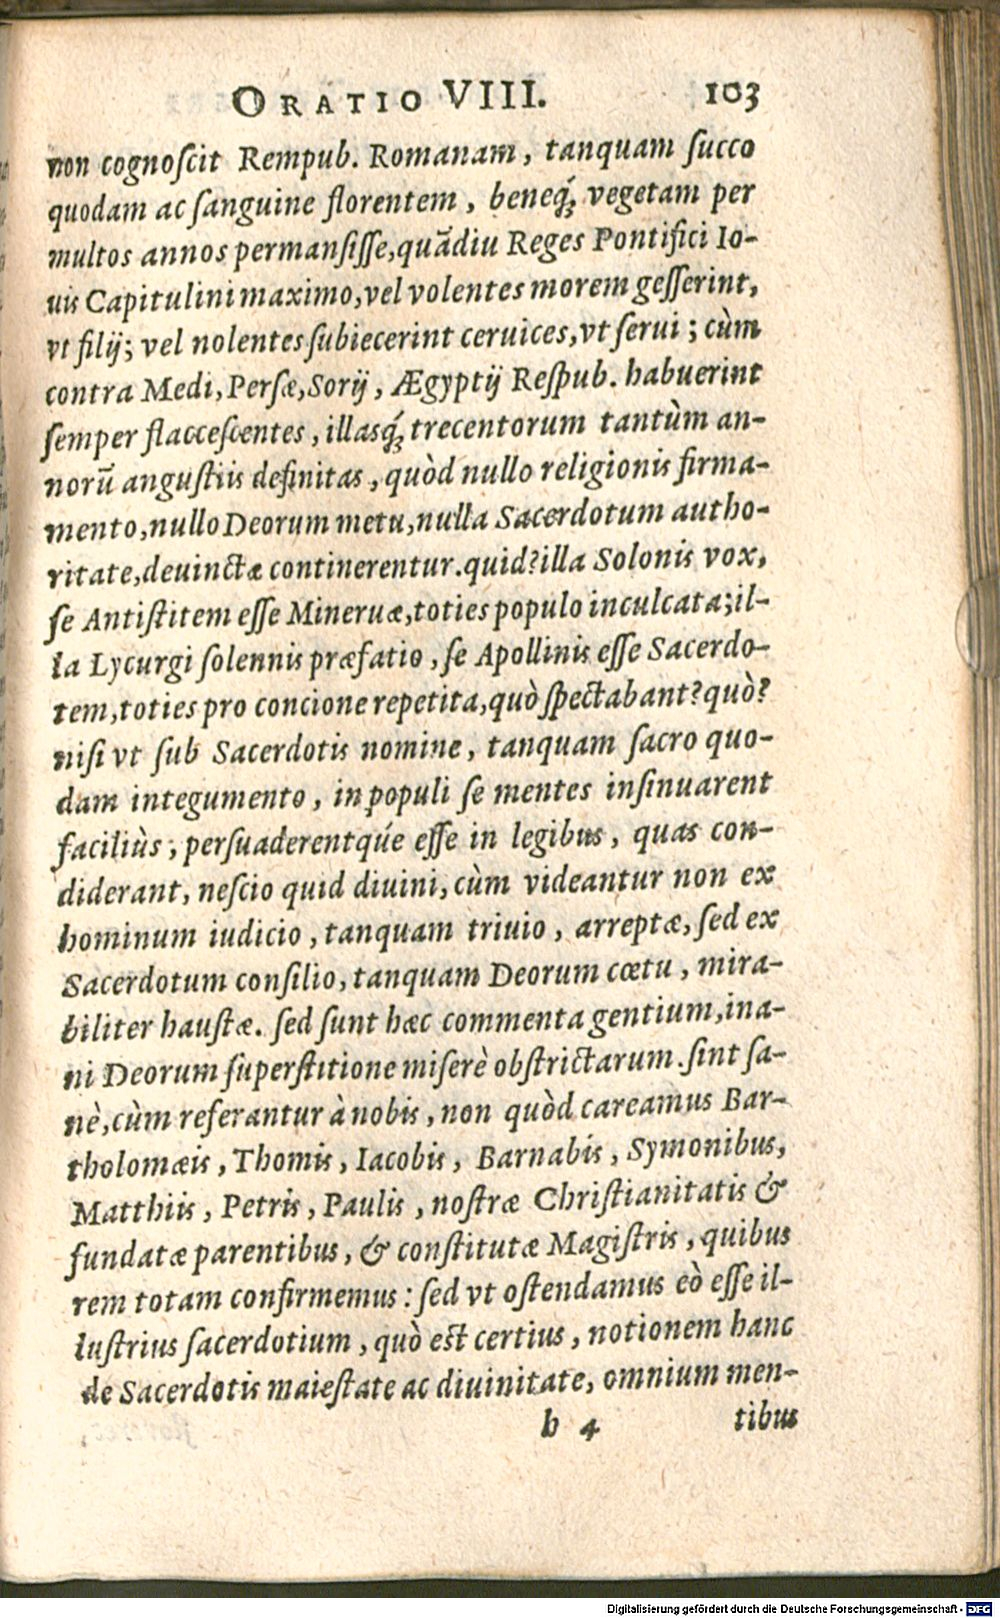 ORATIO VIII. 103
non cognoſcit Rempub. Romanam, tanquam ſucco
quodam ac ſanguine florentem, beneq́; vegetam per
multos annos permanſiſſe, quãdiu Reges Pontifici Io-
uis Capitulini maximo, vel volentes morem geſſerint,
vt filij; vel nolentes ſubiecerint ceruices, vt ſerui; cùm
contra Medi, Perſæ, Sorij, Ægyptij Reſpub. habuerint
ſemper flacceſcentes, illasq́; trecentorum tantùm an-
norũ anguſtiis definitas, quòd nullo religionis firma-
mento, nullo Deorum metu, nulla Sacerdotum autho-
ritate, deuinctæ continerentur. quid? illa Solonis vox,
ſe Antiſtitem eſſe Mineruæ, toties populo inculcata; il-
la Lycurgi ſolennis præfatio, ſe Apollinis eſſe Sacerdo-
tem, toties pro concione repetita, quò ſpectabant? quò?
niſi vt ſub Sacerdotis nomine, tanquam ſacro quo-
dam integumento, in populi ſe mentes inſinuarent
faciliùs; perſuaderentqúe eſſe in legibus, quas con-
diderant, neſcio quid diuini, cùm videantur non ex
hominum iudicio, tanquam triuio, arreptæ, ſed ex
Sacerdotum conſilio, tanquam Deorum cœtu, mira-
biliter hauſtæ. ſed ſunt hæc commenta gentium, ina-
ni Deorum ſuperſtitione miſerè obſtrictarum. ſint ſa-
nè, cùm referantur à nobis, non quòd careamus Bar-
tholomæis, Thomis, Iacobis, Barnabis, Symonibus,
Matthiis, Petris, Paulis, noſtræ Chriſtianitatis &
fundatæ parentibus, & conſtitutæ Magiſtris, quibus
rem totam confirmemus: ſed vt oſtendamus eò eſſe il-
luſtrius ſacerdotium, quò eſt certius, notionem hanc
de Sacerdotis maieſtate ac diuinitate, omnium men-
h 4 tibus
Digitalisierung gefördert durch die Deutsche Forschungsgemeinschaft - DFG